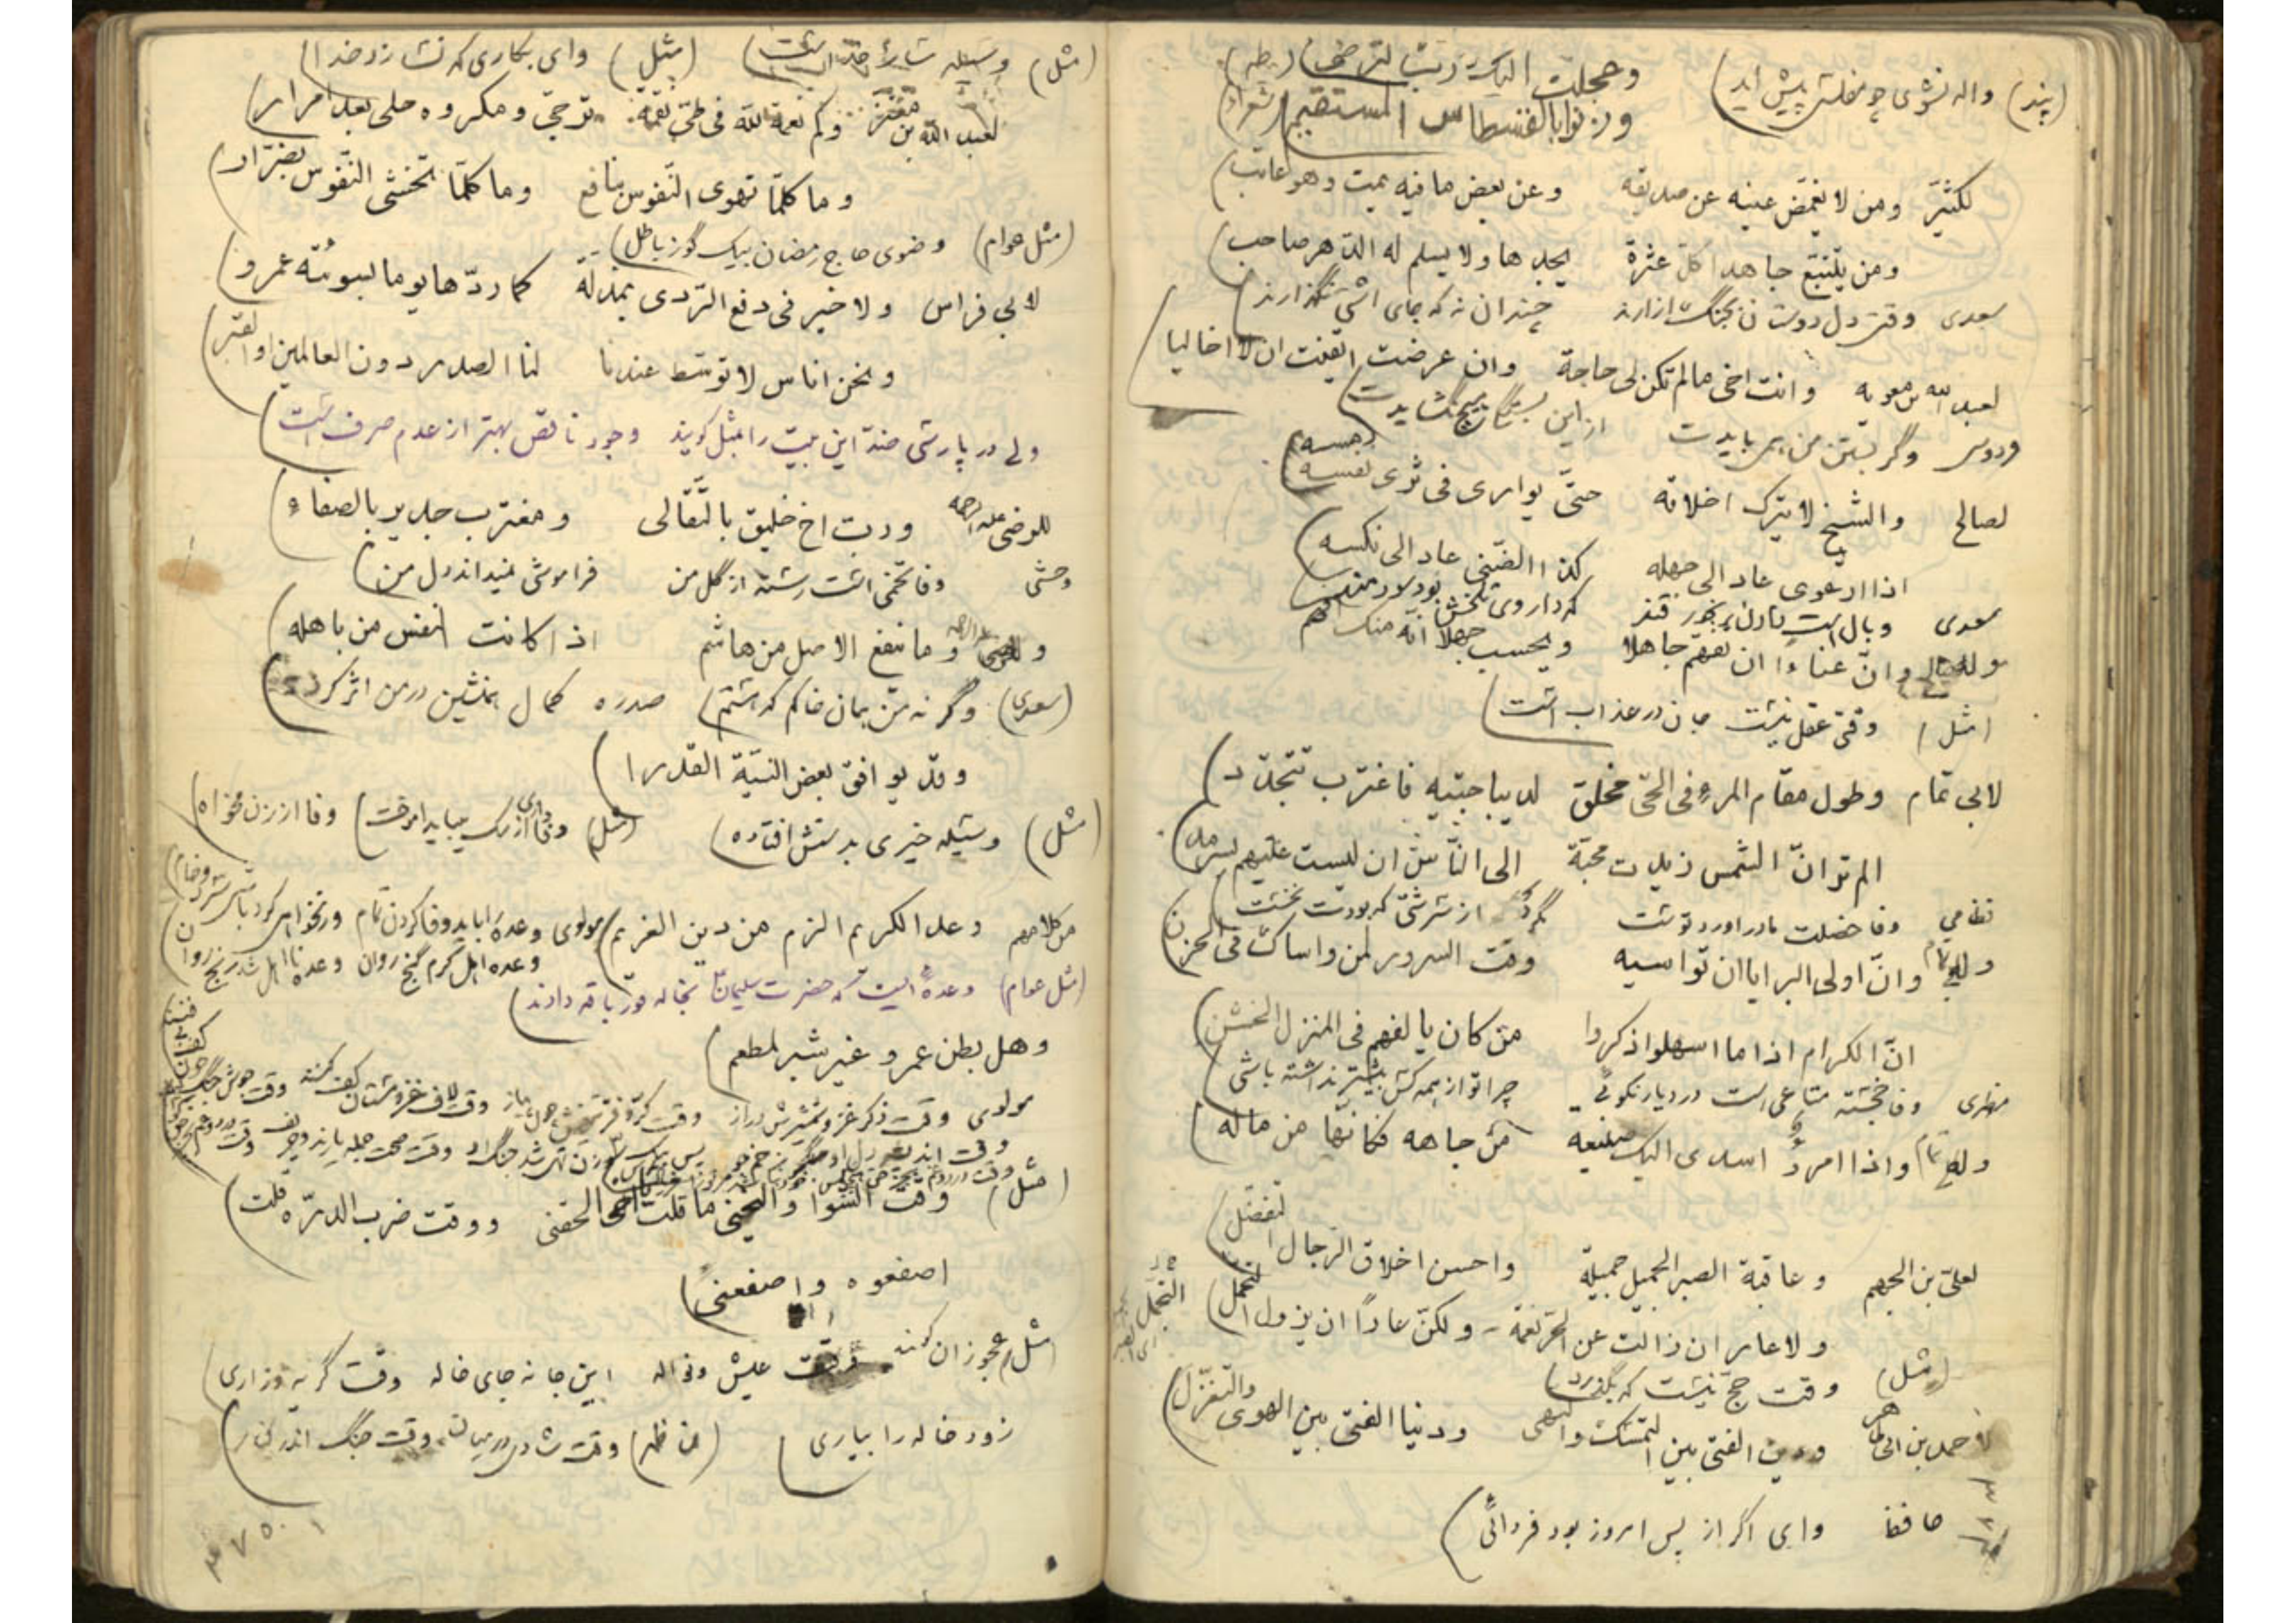 (پند) واله نشوی چو مفلسی پیش اید
وعجلت الیک رب لترضی (طه)
وزنوا بالقسطاس المستقیم (شعراء)
لکثیّر ومن لا یغمّض عینه عن صدیقه وعن بعض ما فیه یمت وهو عاتب
ومن یتتبع جاهدا کلّ عثرة یجدها ولا یسلم له الدّهر صاحب
سعدی وقتی دل دوستان بجنگ ازارند چندان نه که جای اشتی نگذارند
لعبد الله بن معویه وانت اخی مالم تکن لی حاجة وان عرضت ایقنت ان لا اخالیا
وگر بستن من همی بایدت از این بستگی هیچ نگشایدت
لصالح والشیخ لا یترک اخلاقه حتّی یواری فی ثری رمسه
اذا ارعوی عاد الی جهله کذا الضّنی عاد الی نکسه
سعدی وبال است دادن برنجور قند که داروی تلخش بود سودمند
ولصالح وانّ عناءا ان تفهّم جاهلا ویحسب جهلا انّه منک افهم
(مثل) وقتی عقل نیست جان در عذاب است
لابی تمام وطول مقام المرء فی الحیّ مخلق لدیباجتیه فاغترب تتجدّد
الم تر انّ الشمس زیدت محبّة الی النّاس ان لیست علیهم بسرمد
نظامی وفا خصلت مادراورد توست مگرد از سرشتی که بودت نخست
ولابی تمام وانّ اولی البرایا ان تواسیه وقت السرور لمن واساک فی الحزن
انّ الکرام اذا ما اسهلوا ذکروا من کان یالفهم فی المنزل الخشن
وفا خجسته متاعی است در دیار نکوئی چرا تو از همه کس بیشتر نداشته باشی
ولابی تمام واذا امرؤ اسدی الیک صنیعه من جاهه فکانّها من ماله
لعلیّ بن الجهم وعاقبة الصبر الجمیل جمیلة واحسن اخلاق الرّجال التفضّل
ولا عار ان زالت عن الحرّ نعمة ولکنّ عارًا ان یزول التجمّل
(مثل) وقت حجّ نیست که بگذرد
لاحمد بن ابی طاهر ودین الفتی بین التمسّک والنهی ودنیا الفتی بین الهوی والتغزّل
حافظ وای اگر از پس امروز بود فردائی
(مثل) وسیله ساز خدا است (مثل) وای بکاری که نسازد خدا
لعبد الله بن معتز وکم نعمة لله فی طیّ نقمة ترجّی ومکروه حلی بعد امرار
وما کلّما تهوی النّفوس بنافع وما کلّما تخشی النّفوس بضرّار
(مثل عوام) وضوی حاج رمضان بیک گوز باطل
لابی فراس ولا خیر فی دفع الرّدی بمذلّة کما ردّها یوما بسوئته عمرو
ونحن اناس لا توسّط عندنا لنا الصدر دون العالمین او القبر
ولی در پارسی ضدّ این بیت را مثل گویند وجود ناقص بهتر از عدم صرف است
للرضی علیه الرحمه وربّ اخ خلیق بالتّقالی ومغترب جدیر بالصفاء
وحشی وفا تخمی است رسته از گل من فراموشی نمیداند دل من
وما ینفع الاصل من هاشم اذا کانت النفس من باهله
(سعدی) وگرنه من همان خاکم که هستم صدره کمال همنشین در من اثر کرد
وقد یوافق بعض النیّة القدرا
(مثل) وسیله خیری بدستش افتاده (مثل) وفاداری از سگ میباید اموخت وفا از زن مخواه
من کلامهم وعد الکریم الزم من دین الغریم مولوی وعده را باید وفا کردن تمام ورنخواهی کرد باشی سرد و خام
وعده اهل کرم گنج روان وعده نااهل شد رنج روان
(مثل عوام) وعده ایست که حضرت سلیمان بخاله قورباقه دادند
وهل بطن عمرو غیر شبر لمطعم
مولوی وقت ذکر غزو شمشیرش دراز وقت کرّ و فرّ تیغش چون پیاز وقت لاف غزو مستان کف کنند وقت جوش جنگ چون کف بی فنند
(مثل) ووقت ضرب الدرّه قلت
اصفعوه واصفعنی
مثل عجوزان کهنه وقت عیش ونواله این جا نه جای خاله وقت گریه وزاری
زود خاله را بیاری (من ظهر) وقت شادی در میان وقت جنگ اندر کنار